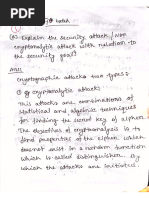 (1)
(A) Explain the security attack / non
cryptanalytic attack with relation to
the security goal?
Ans:
cryptographic attacks two types:
① cryptanalytic attack
This attacks are combinations of
statistical and algebric techniques
for finding the secret key of cipher
The objectives of cryptanalysis is to
find properties of the cipher which
doesnot exist in a random function
which is called distinguishers. By
which the attack is initiated